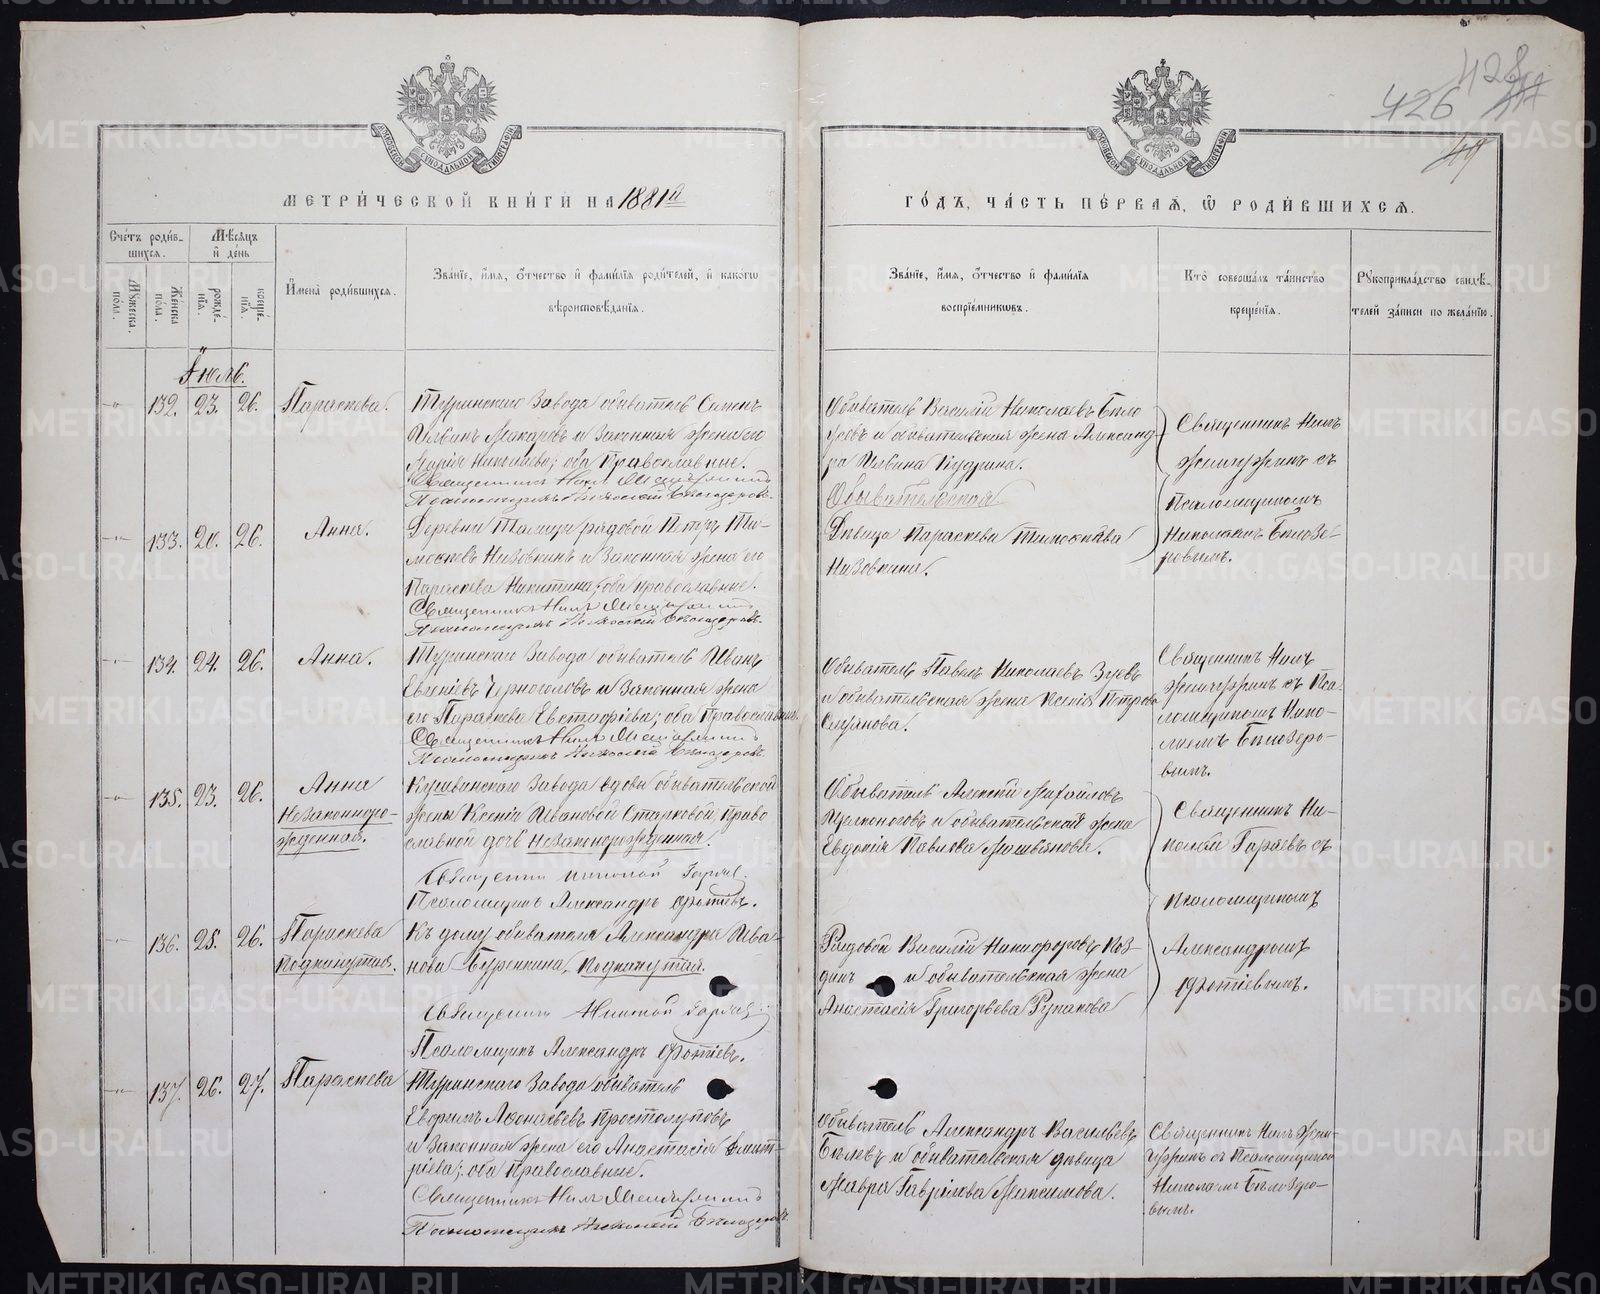 428
426
МЕТРИ́ЧЕСКОЙ КНИ́ГИ НА 1881й
ГО́ДЪ, ЧА́СТЬ ПЕ́РВАѦ, Ѡ РОДИ́ВШИХСѦ.
Сче́тъ роди́в-
шихсѧ.
Мѣ́сѧцъ
и҆ де́нь
Мꙋ́жеска
пола.
Же́нска
по́ла.
рожде́-
нїѧ.
креще́-
нїѧ.
И҆мена̀ роди́вшихсѧ.
Зва́нїе, и҆́мѧ, ѻ҆́тчество и҆ фами́лїѧ роди́телей, и҆ како́гѡ
вѣроисповѣ́данїѧ.
Зва́нїе, и҆́мѧ, ѻ҆́тчество и҆ фами́лїѧ
воспрїе́мникѡвъ.
Кто̀ соверша́лъ та́инство
креще́нїѧ.
Рꙋкоприкла́дство свидѣ́-
телей за́писи по жела́нїю.
Іюль.
132. 23. 26. Параскева.
Туринскаго Завода обыватель Семенъ
Ильинъ Макаровъ и Законная жена его
Марія Николаева; оба Православные.
Священникъ Нилъ
Псаломщикъ Николай Бѣлозеровъ.
Обыватель Василій Николаевъ Бѣло
усовъ и обывательская жена Александ-
ра Ильина Кудрина.
Обывательская
Священникъ Нилъ
съ
Псаломщикомъ
Николаемъ Бѣлозе-
ровымъ.
133. 20. 26. Анна.
Деревни рядовой Петръ Ти-
мофеевъ Низовкинъ и Законная жена его
Параскева Никитина; оба православные.
Священникъ Нилъ
Псаломщикъ Николай Бѣлозеровъ.
Дѣвица Параскева Тимофеева
Низовкина.
134. 24. 26. Анна.
Туринскаго Завода обыватель Иванъ
Евгеніевъ Черноголовъ и Законная жена
его Параскева Евстафіева; оба Православные.
Священникъ Нилъ
Псаломщикъ Николай Бѣлозеровъ.
Обыватель Павелъ Николаевъ Зуевъ
и обывательская жена Ксенія Петрова
Священникъ Нилъ
съ Пса-
ломщикомъ Нико-
лаемъ Бѣлозеро-
вымъ.
135. 23. 26. Анна
Незаконноро-
жденная.
Кушвинскаго Завода вдовы обывательской
жены Ксеніи Ивановой Старковой право
славной дочь Незаконнорожденная.
Священникъ Николай
Псаломщикъ Александръ Фотіевъ.
Обыватель Алексій Михайловъ
и обывательская жена
Евдокія Павлова
Священникъ Ни-
колай съ
Псаломщикомъ
Александромъ
Фотіевымъ.
136. 25. 26. Параскева
Подкинутая.
Къ дому обывателя Александра Ива-
нова Буренкина, Подкинутая.
Священникъ Николай
Псаломщикъ Александръ Фотіевъ.
Рядовой Василій Никифоровъ Поз-
динъ и обывательская жена
Анастасія Григорьева Русакова
137. 26. 27. Параскева
Туринскаго Завода обыватель
Ефремъ Простолуповъ
и Законная жена его Анастасія Димит-
ріева; оба Православные.
Священникъ Нилъ
Псаломщикъ Николай Бѣлозеровъ.
Обыватель Александръ Васильевъ
Бѣлевъ и обывательская дѣвица
Мавра Гаврилова Максимова.
Священникъ Нилъ
съ Псаломщикомъ
Николаемъ Бѣлозеро-
вымъ.
METRIKI.GASO-URAL.RU